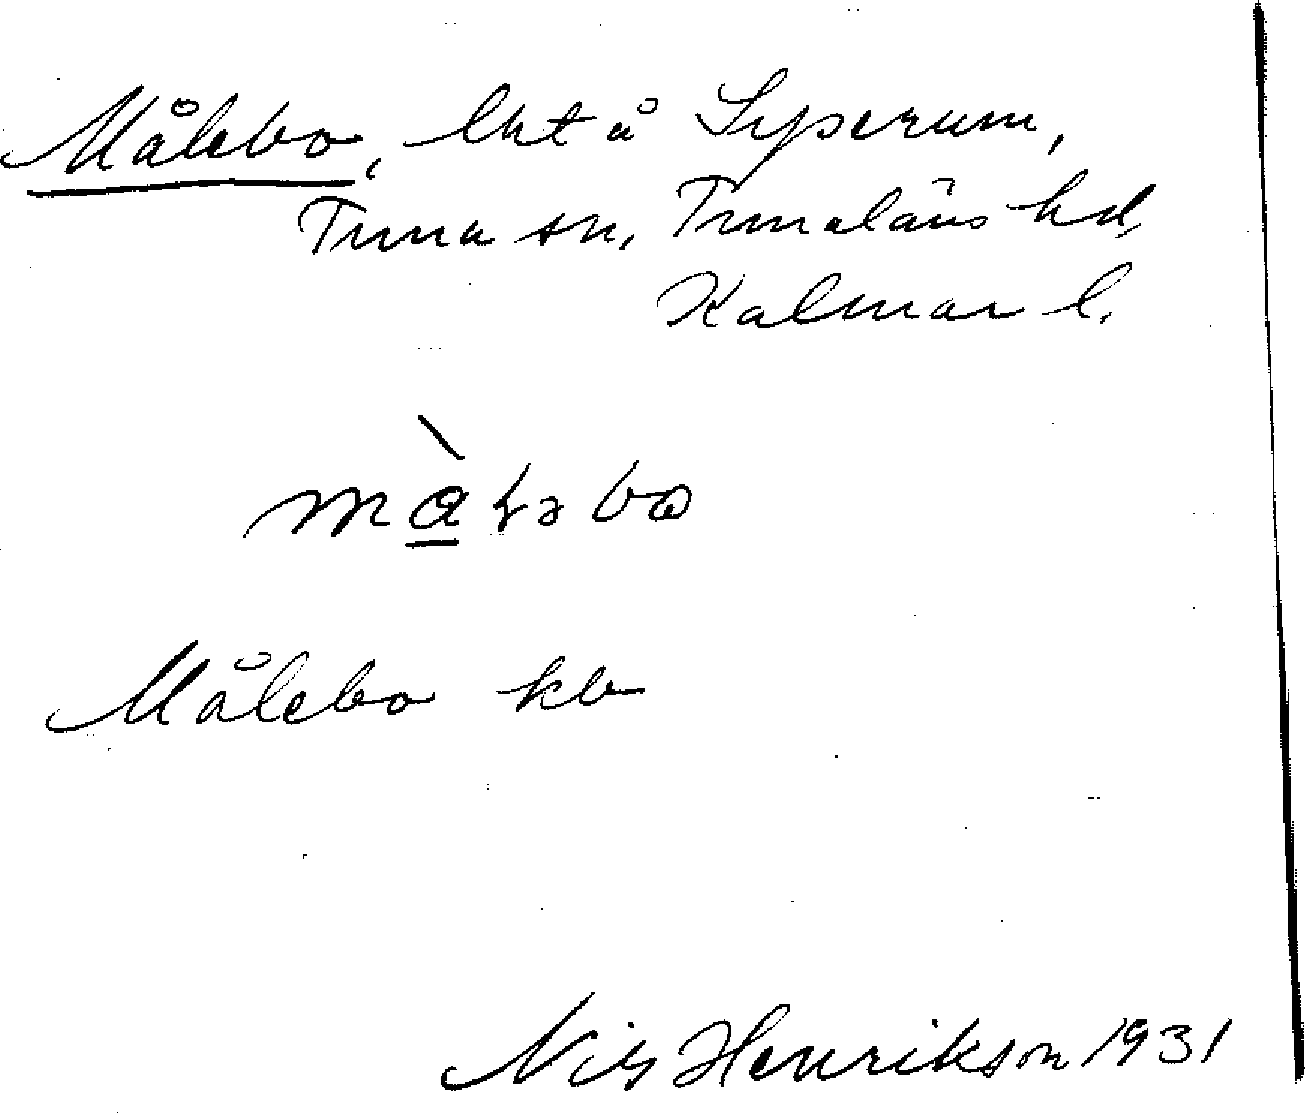 Målebo, lht å Syserum,
Tuna sn, Tunaläns hd,
Kalmar l.
Målebo kb
Nils Henrikson 1931